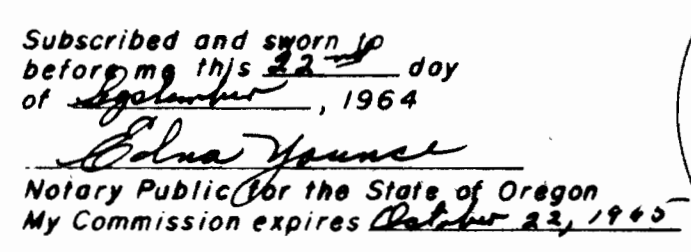 Subscribed and sworn to
before me this 22nd day
of September, 1964
Edna Younce
Notary Public for the State of Oregon
My Commission expires October 22, 1965